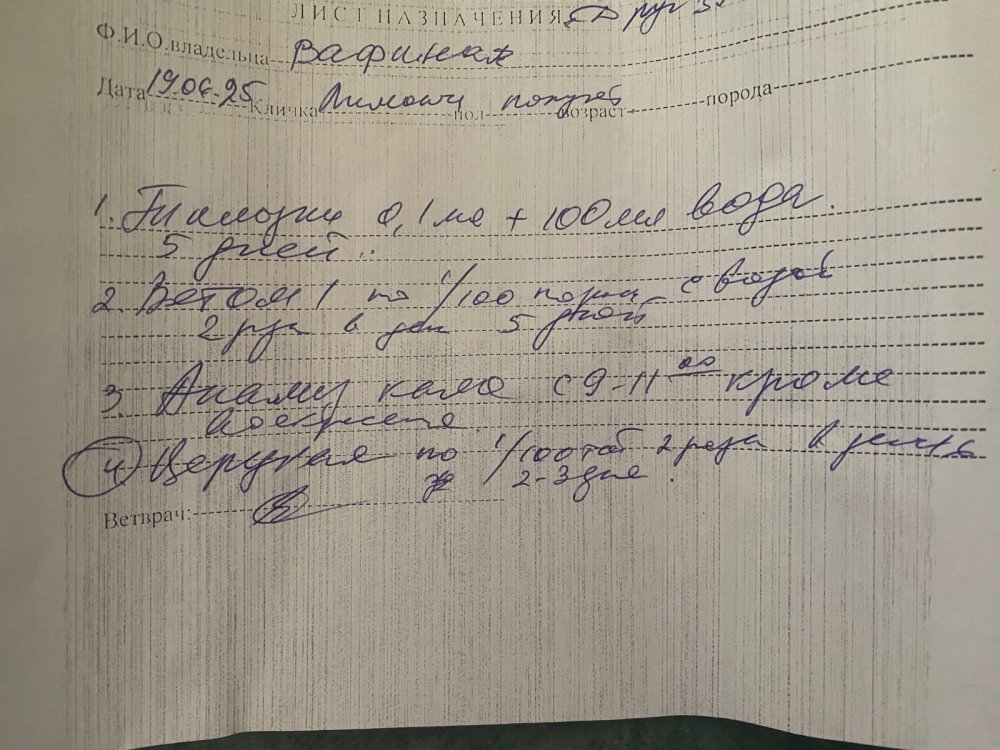 ЛИСТ НАЗНАЧЕНИЯ Друг
Ф.И.О. владельца Вафина
Дата 19.06.25 Кличка Лимоны попугай пол возраст порода
1. Тилозин 0,1 мл + 100 мл вода.
5 дней.
2. Ветом 1 по 1/100 порции с водой
2 раза в день 5 дней
3. Анализ кала с 9-11 00 кроме
воскресенья.
4) Церукал по 1/100 таб 2 раза в день
2-3 дня.
Ветврач: